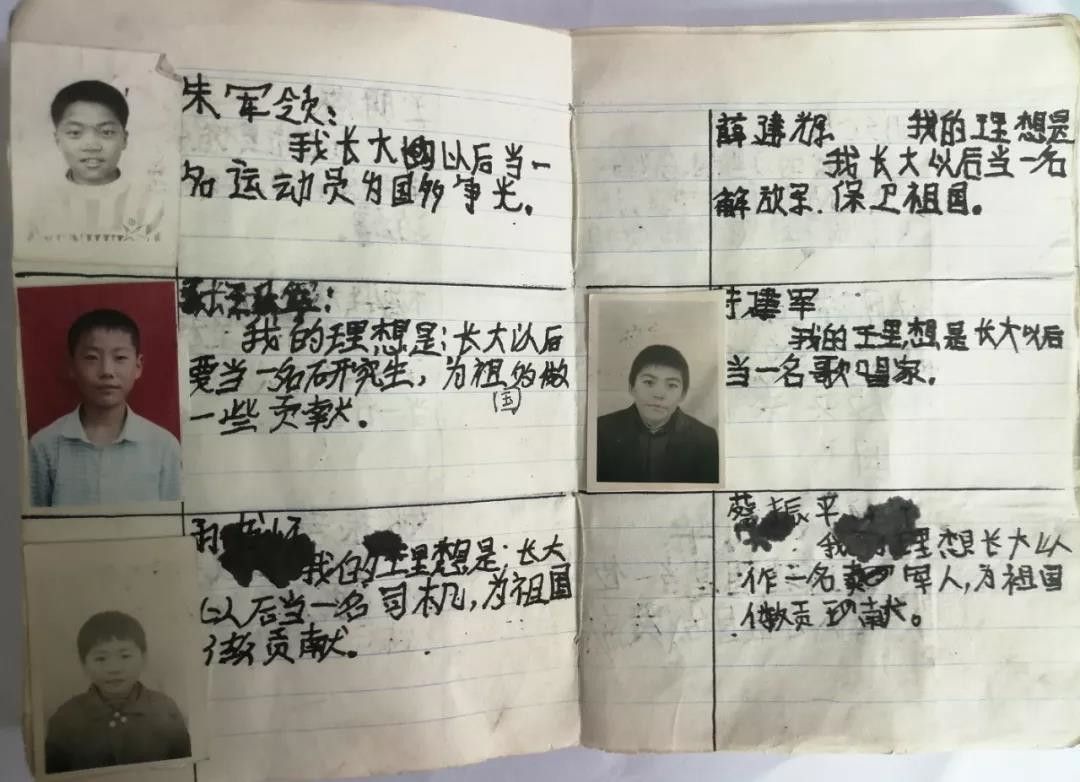 朱军领:
我长大以后当一
名运动员为国多争光。
我的理想是:长大以后
要当一名研究生,为祖的做
(国)
一些贡献。
我的理想是:长大
以后当一名司机,为祖国
做贡献。
薛建辉 我的理想是
我长大以后当一名
解放军.保卫祖国。
建军
我的理想是长大以后
当一名歌唱家.
蔡振平
我的理想长大以
作一名 军人,为祖国
做贡献。